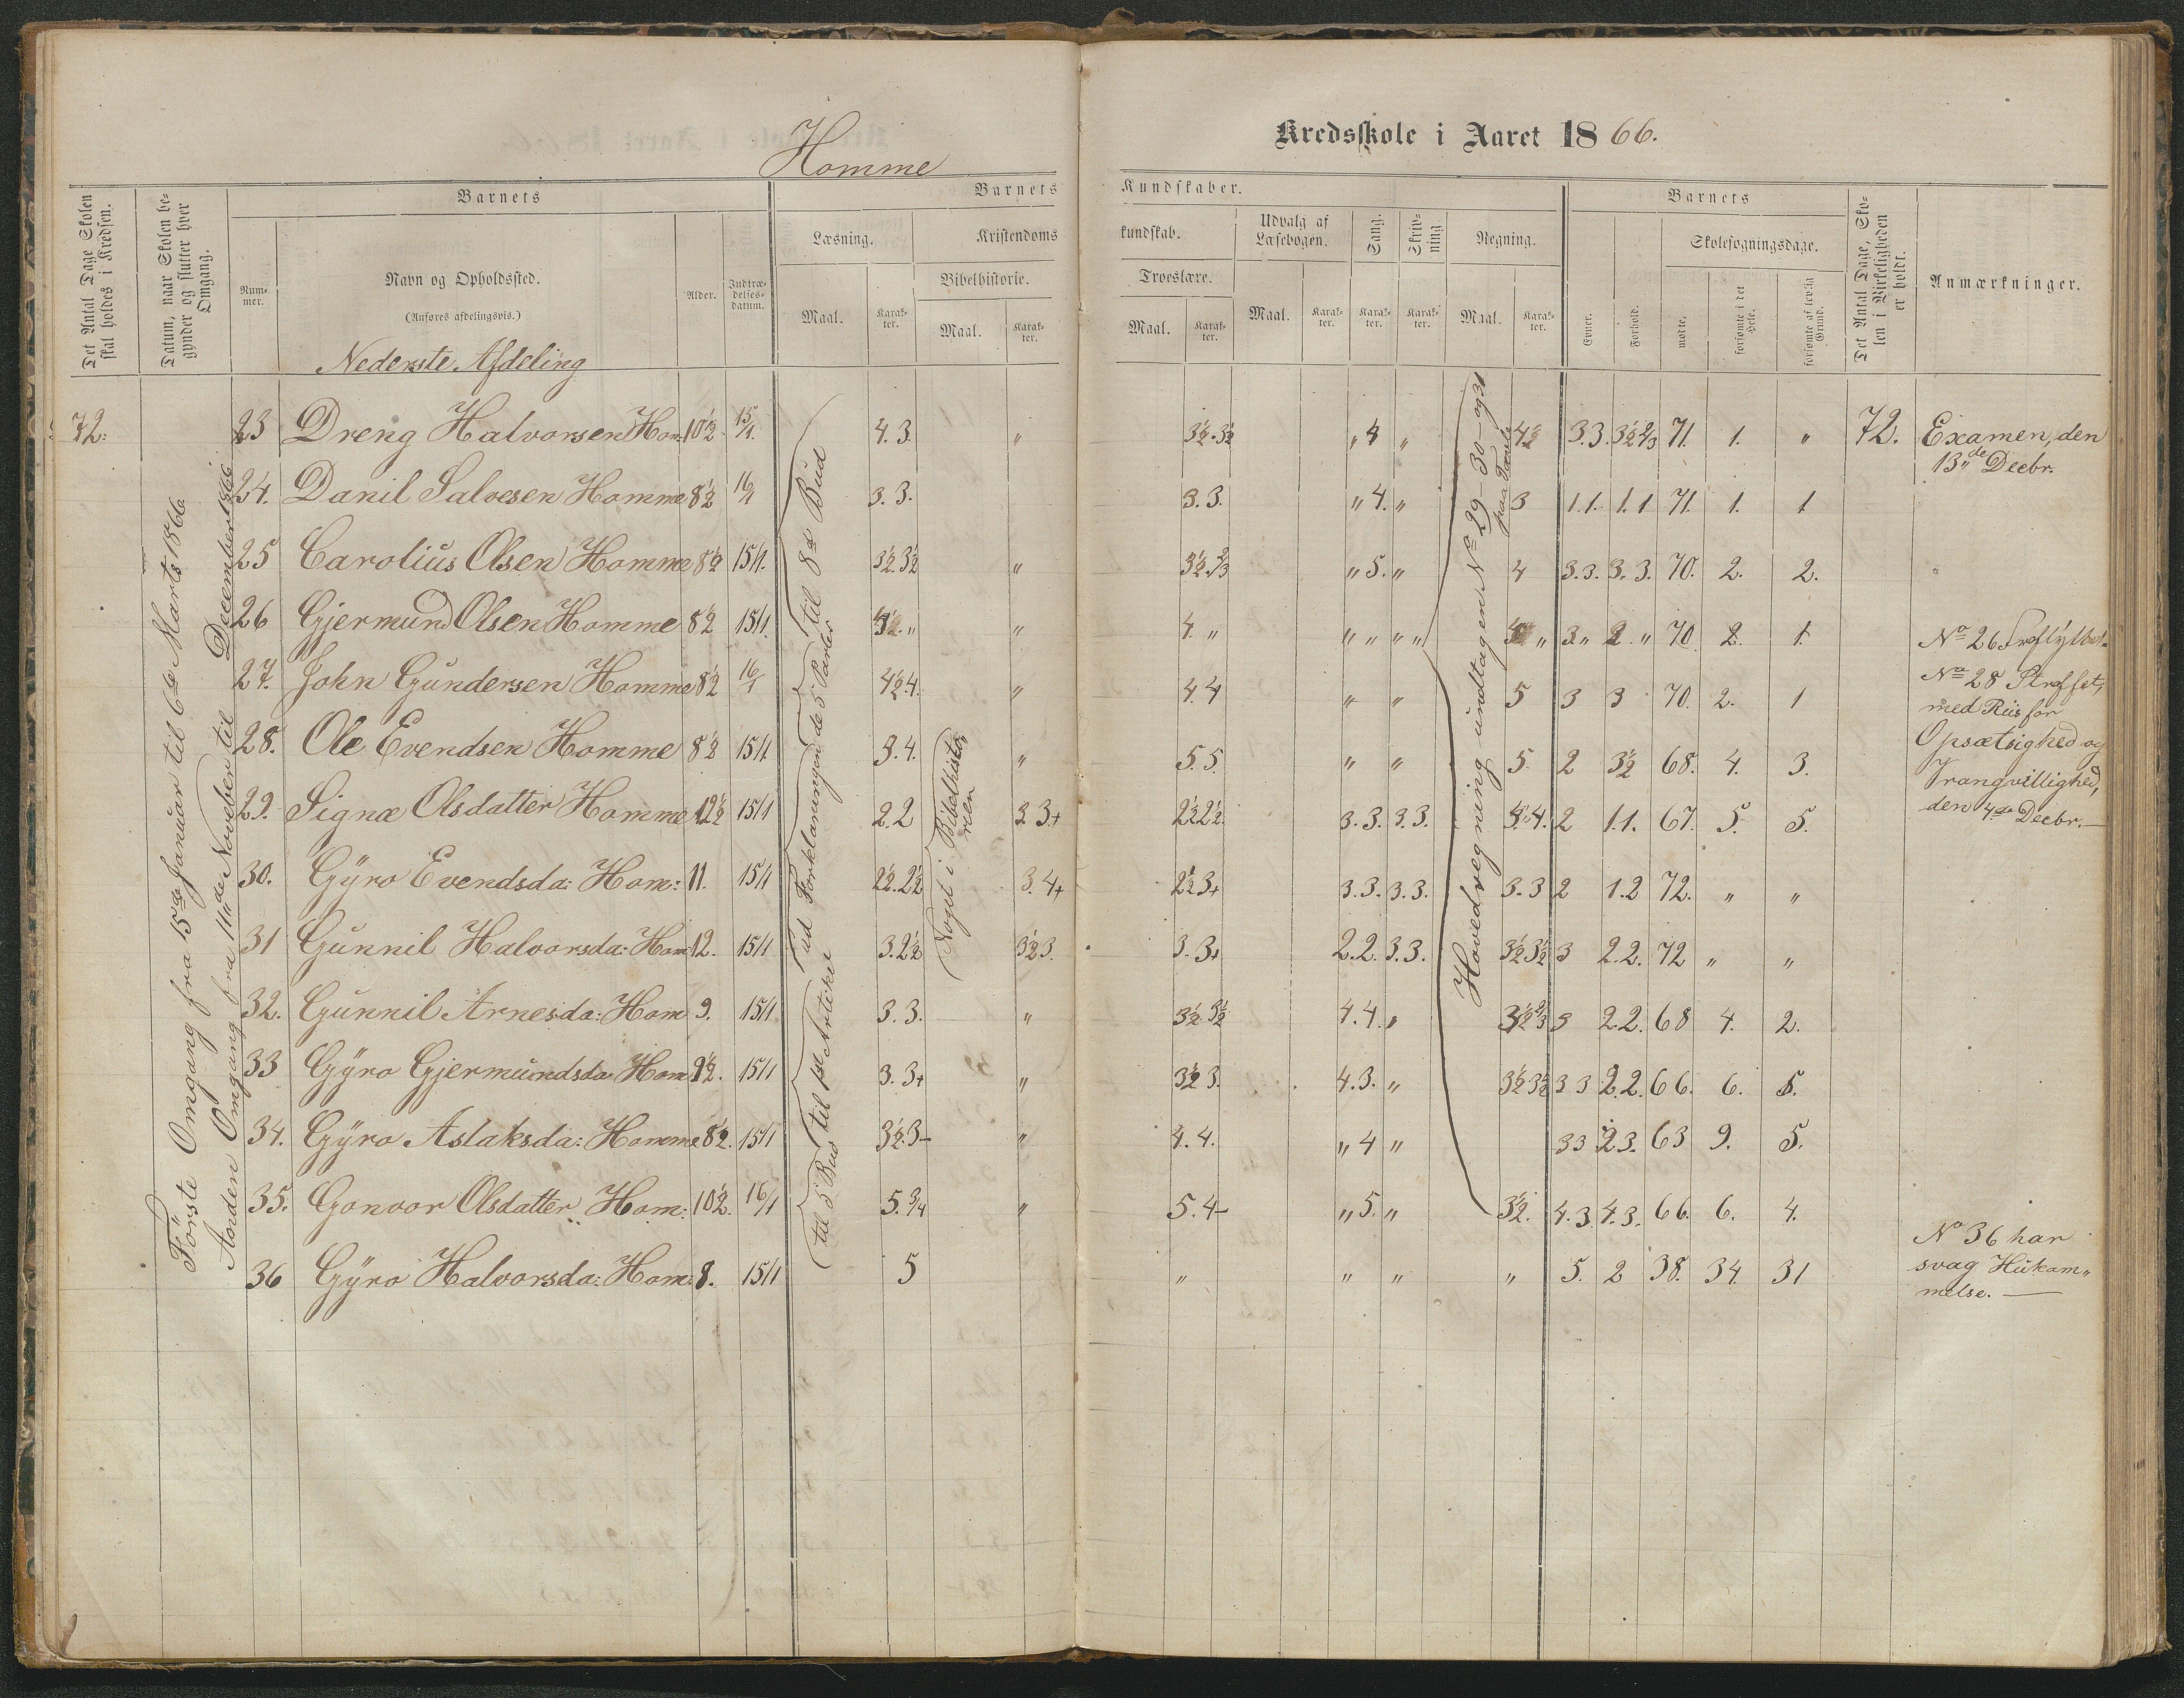 Homme
Kredsskole i Aaret 1866.
Det Antal Dage Skolen skal holdes i Kredsen.
Datum, naar Skolen begynder og slutter hver Omgang.
Barnets
Nummer.
Navn og Opholdssted.
(Anføres afdelingsvis.)
Alder.
Indtrædelses-datum.
Barnets Kundskaber.
Læsning.
Maal.
Karakter.
Kristendomskundskab.
Bibelhistorie.
Maal.
Karakter.
Troeslære.
Maal.
Karakter.
Udvalg af Læsebogen.
Maal.
Karakter.
Sang.
Karakter.
Skrivning.
Karakter.
Regning.
Maal.
Karakter.
Barnets
Evner.
Forhold.
Skolesøgningsdage.
mødte.
forsømte i det Hele.
forsømte af lovlig Grund.
Det Antal Dage, Skolen i Virkeligheden er holdt.
Anmærkninger.
Nederste Afdeling
Förste Omgang fra 15de Januar til 6te Marts 1866
Anden Omgang fra 11te November til December 1866
til 8de Bud
ud Forklaringen de 5 Parter
til 1ste Artikel
til 5 Bud
Noget i Bibelhistorien
Hovedregning undtagen No 29-30-og 31 paa Tavle
72. 23 Dreng Halvorsen Hom: 10½ 15/1. 4. 3. " 3½.3½ " 4 " 4½ 3.3. 3½ 71. 1. " 72. Examen, den 13de Decbr.
24. Danil Salvesen Homme 8½ 16/1 3. 3. 3. 3. " 4. " 3 1.1. 1.1 71. 1. 1
25 Carolius Olsen Homme 8½ 15/1. 3½.3½ " 3½ " 5. " 4 3.3. 3.3. 70. 2. 2.
26 Gjermund Olsen Homme 8½ 15/1. " " 4. " " " " " " 3 " 2. " 70. 2. 1. No 26
27. John Gundersen Homme 8½ 16/1 4½.4. " 4.4 " " 5 3 3 70. 2. 1 No 28 Straffet,
28. Ole Evendsen Homme 8½ 15/1. 3.4. " 5.5. " " 5. 2 3½ 68. 4. 3. med Riis for Opsætsighed og
29. Signæ Olsdatter Homme 12½ 15/1 2.2 3 3+ 2½2½. 3.3. 3.3. 4. 2 1.1. 67. 5. 5. Vrangvillighed, den 4de Decbr.
30. Gÿro Evendsda: Hom: 11. 15/1 2½.2½ 3.4+ 2½3+ 3.3. 3.3. 3.3 2 1.2 72. " "
31 Gunnil Halvorsda: Hom 12. 15/1 3.2½ 3½3. 3.3+ 2.2. 3.3. 3½3½ 3 2.2. 72 " "
32. Gunnil Arnesda: Hom 9. 15/1 3.3. " 3½ 3½ 4.4. " 3½ 3 2.2. 68 4. 2.
33 Gÿro Gjermundsda Hom 9½. 15/1 3.3+ " 3½ 3. 4.3. " 3½3½ 3 3 2.2. 66. 6. 5.
34. Gÿro Aslaksda: Homme 8½. 15/1 3½.3- " 4.4. " 4 " 3 3 2.3. 63 9. 5.
35. Gonvor Olsdatter Hom: 10½. 16/1 5. 3/4 " 5.4- " 5. " 3½. 4.3. 4.3. 66. 6. 4.
36 Gÿro Halvorsda: Hom: 8. 15/1 5 " " " " 5. 2 38. 34. 31 No 36 har
svag Hukom"
melse.